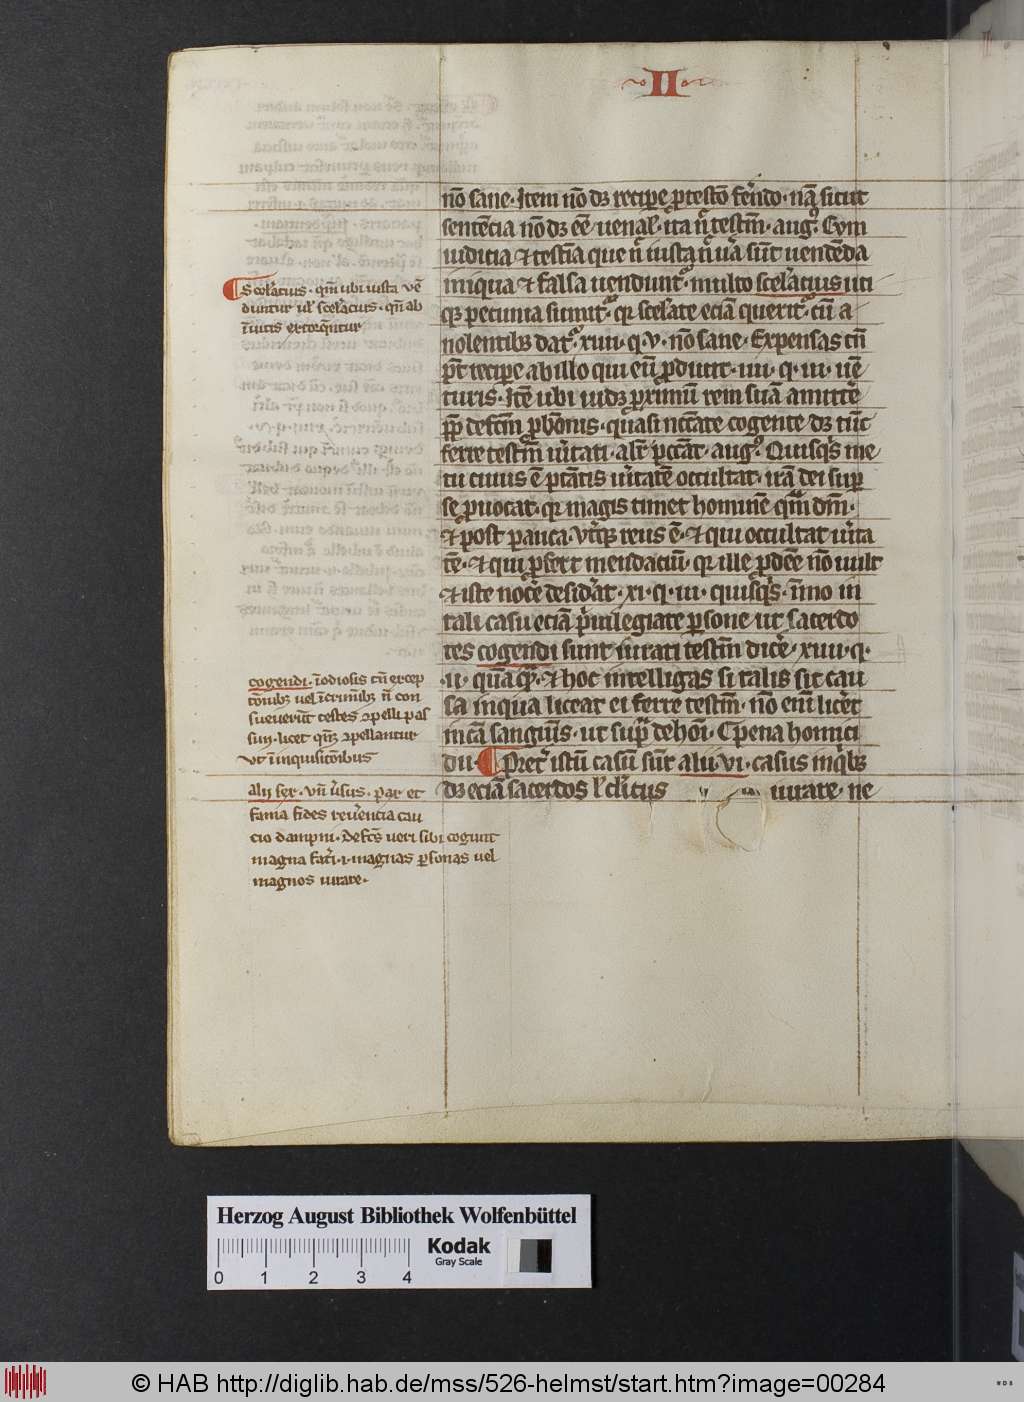 II
nō sane · Itē nō dꝫ recipe p̱ testō fẽndo · nā sicut
sentēcia nō dꝫ eē uenal̛ · ita ñ testm̄ · aug⁹ Cvm
iudicia ⁊ testīa que ñ iusta ñ uā sūt uendēda
iniqua ⁊ falsa uendunt᷑ multo scel̛acius iti
qꝫ pecunia sumit᷑ · qꝛ scel̛ate eciā querit᷑ · cū a
nolentibꝫ dat᷑ · xiiii · q · v · nō sane · Expensas tñ
p̄t recipe ab illo qui eū ꝓducit · iiii · q · iii · uē
turis · Itē ubi iudꝫ ꝓximū rem suā amitte᷑
ꝓp̱ defcm̄ ꝓbōnis · quasi nccāte cogente dꝫ tūc
ferre testm̄ u᷑itati · alr̄ peccāt · aug⁹ Quisq̄s me
tu cuius ē ptātis u᷑itatē occultat · irā dei sup̱
se ꝓuocat · qꝛ magis timet hominē qm̄ dm̄ ·
⁊ post pauca · Vt̄qꝫ reus ē · ⁊ qui occultat u᷑ita
tē · ⁊ qui ꝓfert mendaciū · qꝛ ille ꝓdeē nō uult
⁊ iste nocē desid᷑at · xi · q · iii · quisq̄s · īmo in
tali casu eciā p̄iuilegiate ꝑsone ut sacerdo
tes cogendi sunt iurati testm̄ dicē · xiiii · q ·
· ii · quā qꝫ · ⁊ hoc intelligas si talis sit cau
sa in qua liceat ei ferre testm̄ · nō enī licet
in cā sanguīs · ut sup̄ de hōi · C pena homici
dii · ¶ Pret᷑ istū casū sūt alii · vi · casus in q̄bꝫ
dꝫ eciā sacerdos l᷑ cl̛icus iurare · ne
¶ Scel̛acius · qm̄ ubi iusta vē
duntur ul̛ scel̛acius · qm̄ ab
īuitis extorq̄ntur
cogendi · īodiosis tñ excep
tōibꝫ uel ī crimībꝫ ñ con
sueuerūt testes ꝯpelli pas
sim · licet qn̄qꝫ ꝯpellantur
vt ī inquisitōnibus
alij sex · vn̄ u᷑sus · pax et
fama fides reu᷑encia cau
cio dampni · Defc̄s ueri sibi cogunt
magna fat᷑i · i · magnas ꝑsonas uel
magnos iurare ·
Herzog August Bibliothek Wolfenbüttel
Kodak
Gray Scale
0 1 2 3 4
© HAB http://diglib.hab.de/mss/526-helmst/start.htm?image=00284